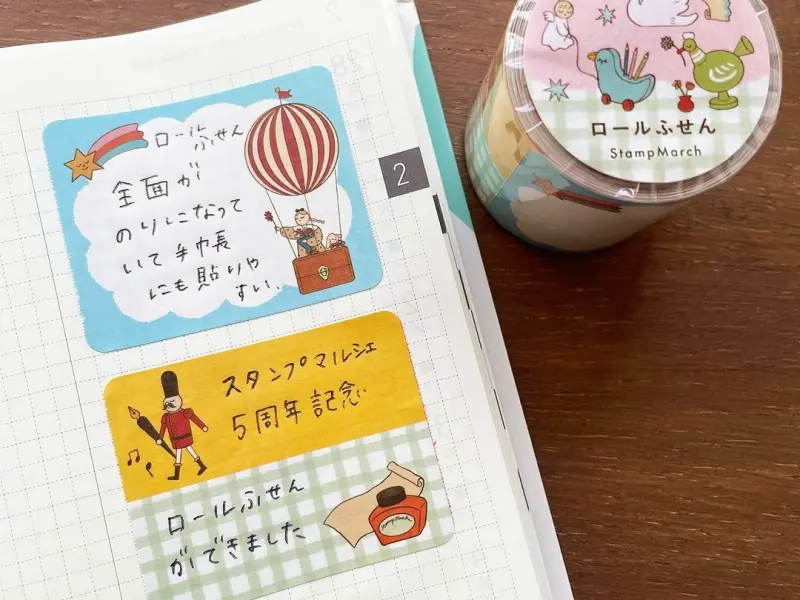 ロールふせん
全面が
のりになって
いて手帳
にも貼りや
すい.
2
スタンプマルシェ
5周年記念
ロールふせん
ができました
StampMarch
ロールふせん
StampMarch